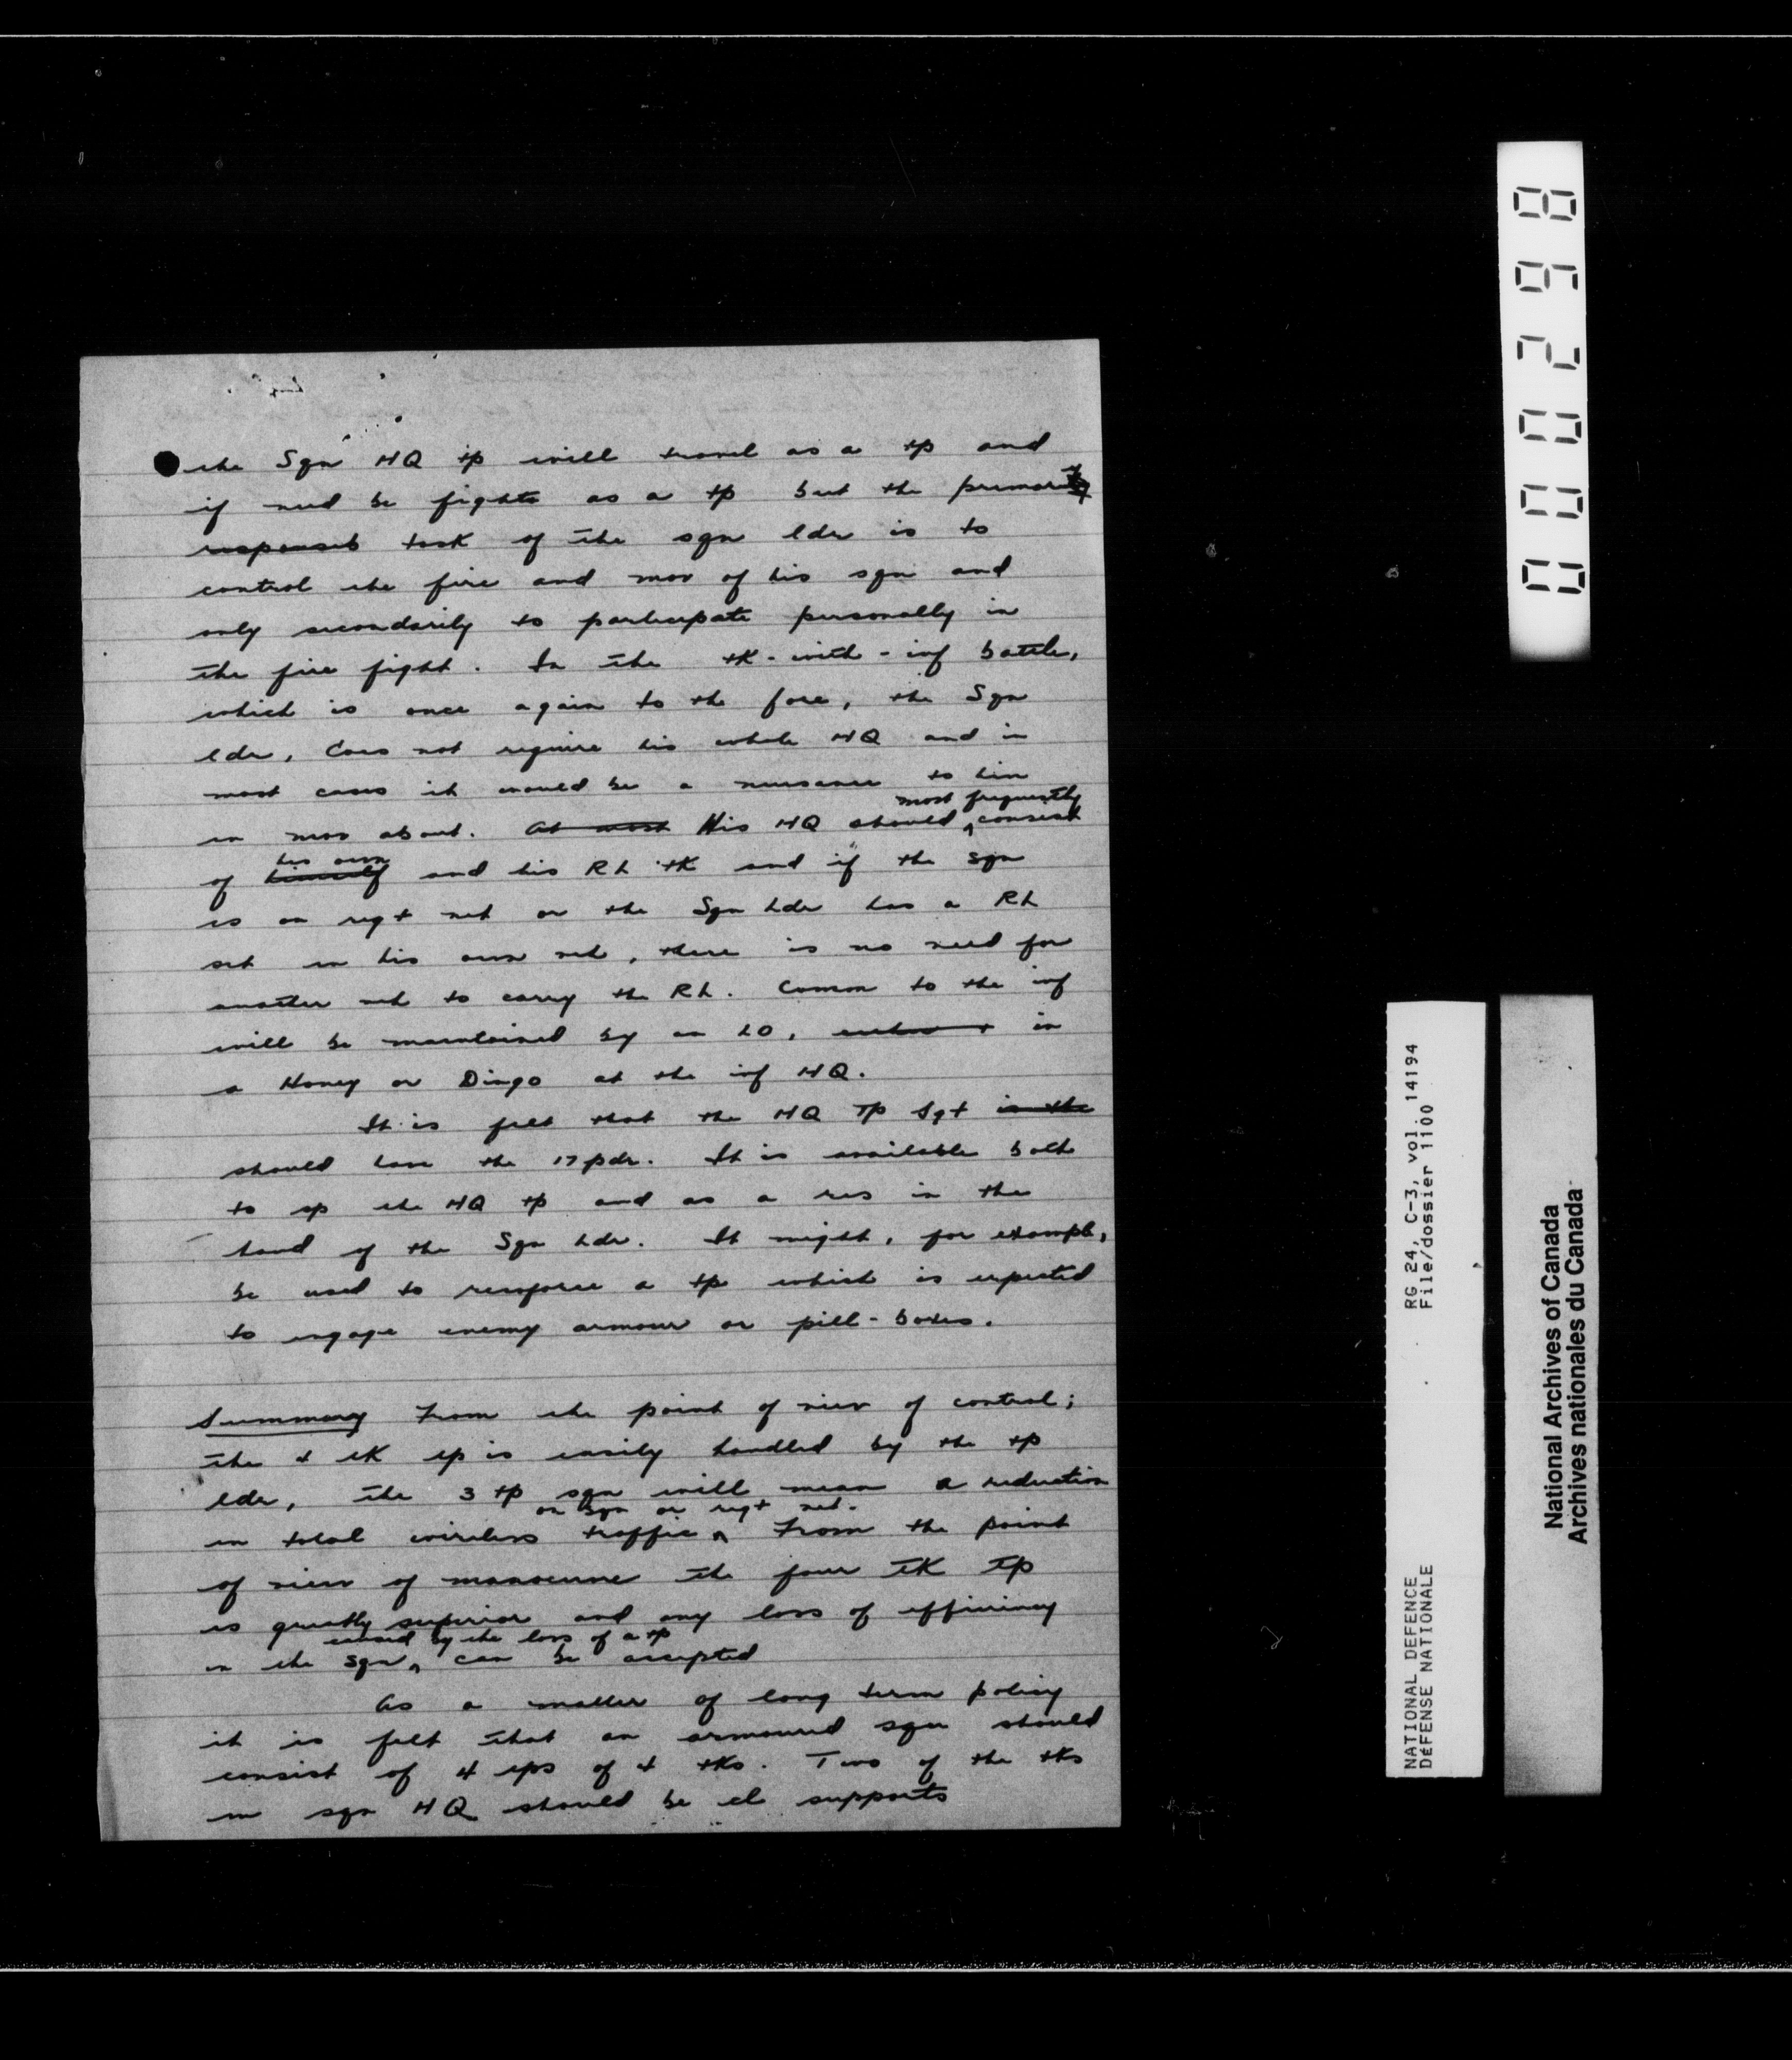 the Sqn HQ tp will travel as a tp and
if need be fights as a tp but the primary
responsib task of the sqn ldr is to
control the fire and mov of his sqn and
only secondarily to participate personally in
the fire fight. In the tk-with-inf battle,
which is once again to the fore, the Sqn
ldr, does not require his whole HQ and in
most cases it would be a nuisance to him
most frequently
in mov about. At most His HQ should consist
his own
of himself and his RL tk and if the sqn
is on regt net or the Sqn Ldr has a RL
set in his own net, there is no need for
another net to carry the RL. Common to the inf
will be maintained by an LO, in
a Honey or Dingo at the inf HQ.
It is felt that the HQ Tp Sgt in the
should have the 17 pdr. It is available both
to sp the HQ tp and as a res in the
hand of the Sqn Ldr. It might, for example,
be used to reinforce a tp which is expected
to engage enemy armour or pill-boxes.
Summary From the point of view of control;
the 4 tk tp is easily handled by the tp
ldr, the 3 tp sqn will mean a reduction
on sqn or regt net.
in total wireless traffic From the point
of view of manoeuvre the four TK Tp
is greatly superior and any loss of efficiency
caused by the loss of a tp
in the sqn, can be accepted
As a matter of long term policy
it is felt that an armoured sqn should
consist of 4 tps of 4 tks. Two of the tks
in sqn HQ should be cl supports
000298
RG 24, C-3, vol. 14194
File/dossier 1100
NATIONAL DEFENCE
DÉFENSE NATIONALE
National Archives of Canada
Archives nationales du Canada